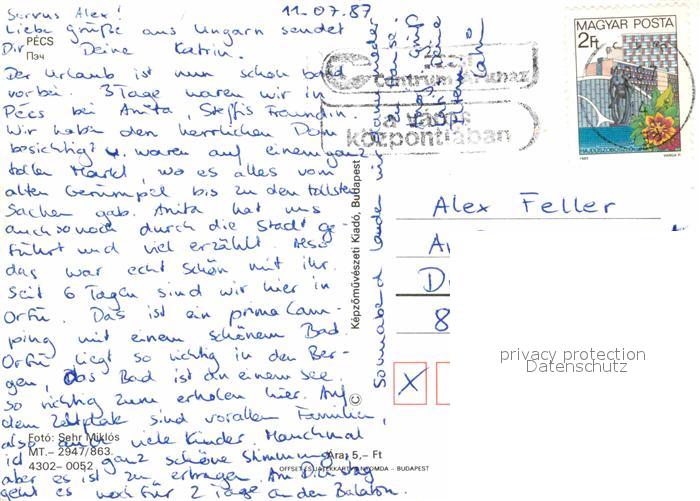 Servus Alex!
11.07.87
Liebe Grüße aus Ungarn sendet
Dir Deine Katrin.
PÉCS
Пэч
Der Urlaub ist nun schon bald
vorbei. 3 Tage waren wir in
Pécs bei Anita, Steffis Freundin.
Wir haben den herrlichen Dom
besichtigt u. waren auf einem ganz
tollen Markt, wo es alles vom
alten Gerümpel bis zu den tollsten
Sachen gab. Anita hat uns
auch so noch durch die Stadt ge-
führt und viel erzählt. Also
das war echt schön mit ihr.
Seit 6 Tagen sind wir hier in
Orfű. Das ist ein prima Cam-
ping mit einem schönem Bad.
Orfű liegt so richtig in den Ber-
gen, das Bad ist an einem See.
So richtig zum erholen hier. Auf
dem Zeltplatz sind vorallem Familien,
also auch viele Kinder. Manchmal
ist ganz schöne Stimmung,
aber es ist zu ertragen. Am
geht es noch für 2 Tage an den Balaton.
Sonnabend landen wir dann wieder
zu Hause.
Deine
Katrin
Fotó: Sehr Miklós
MT.– 2947/863.
4302– 0052
Ára: 5,– Ft
OFFSET ÉS JÁTÉKKÁRTYA NYOMDA – BUDAPEST
© Képzőművészeti Kiadó, Budapest
Centrum Áruház
a város
központjában
MAGYAR POSTA
2Ft
Alex Feller
A
D
8
X
privacy protection
Datenschutz